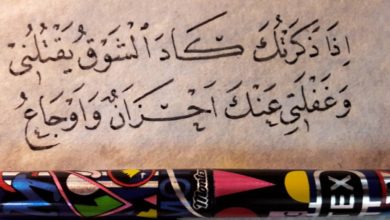 اِذَا ذَكَرْتُكَ كَادَ الشَّوْقُ يَقْتُلُنِي
وَغَفْلَتِي عَنْكَ اَحْزَانٌ وَاَوْجَاعُ
TEX